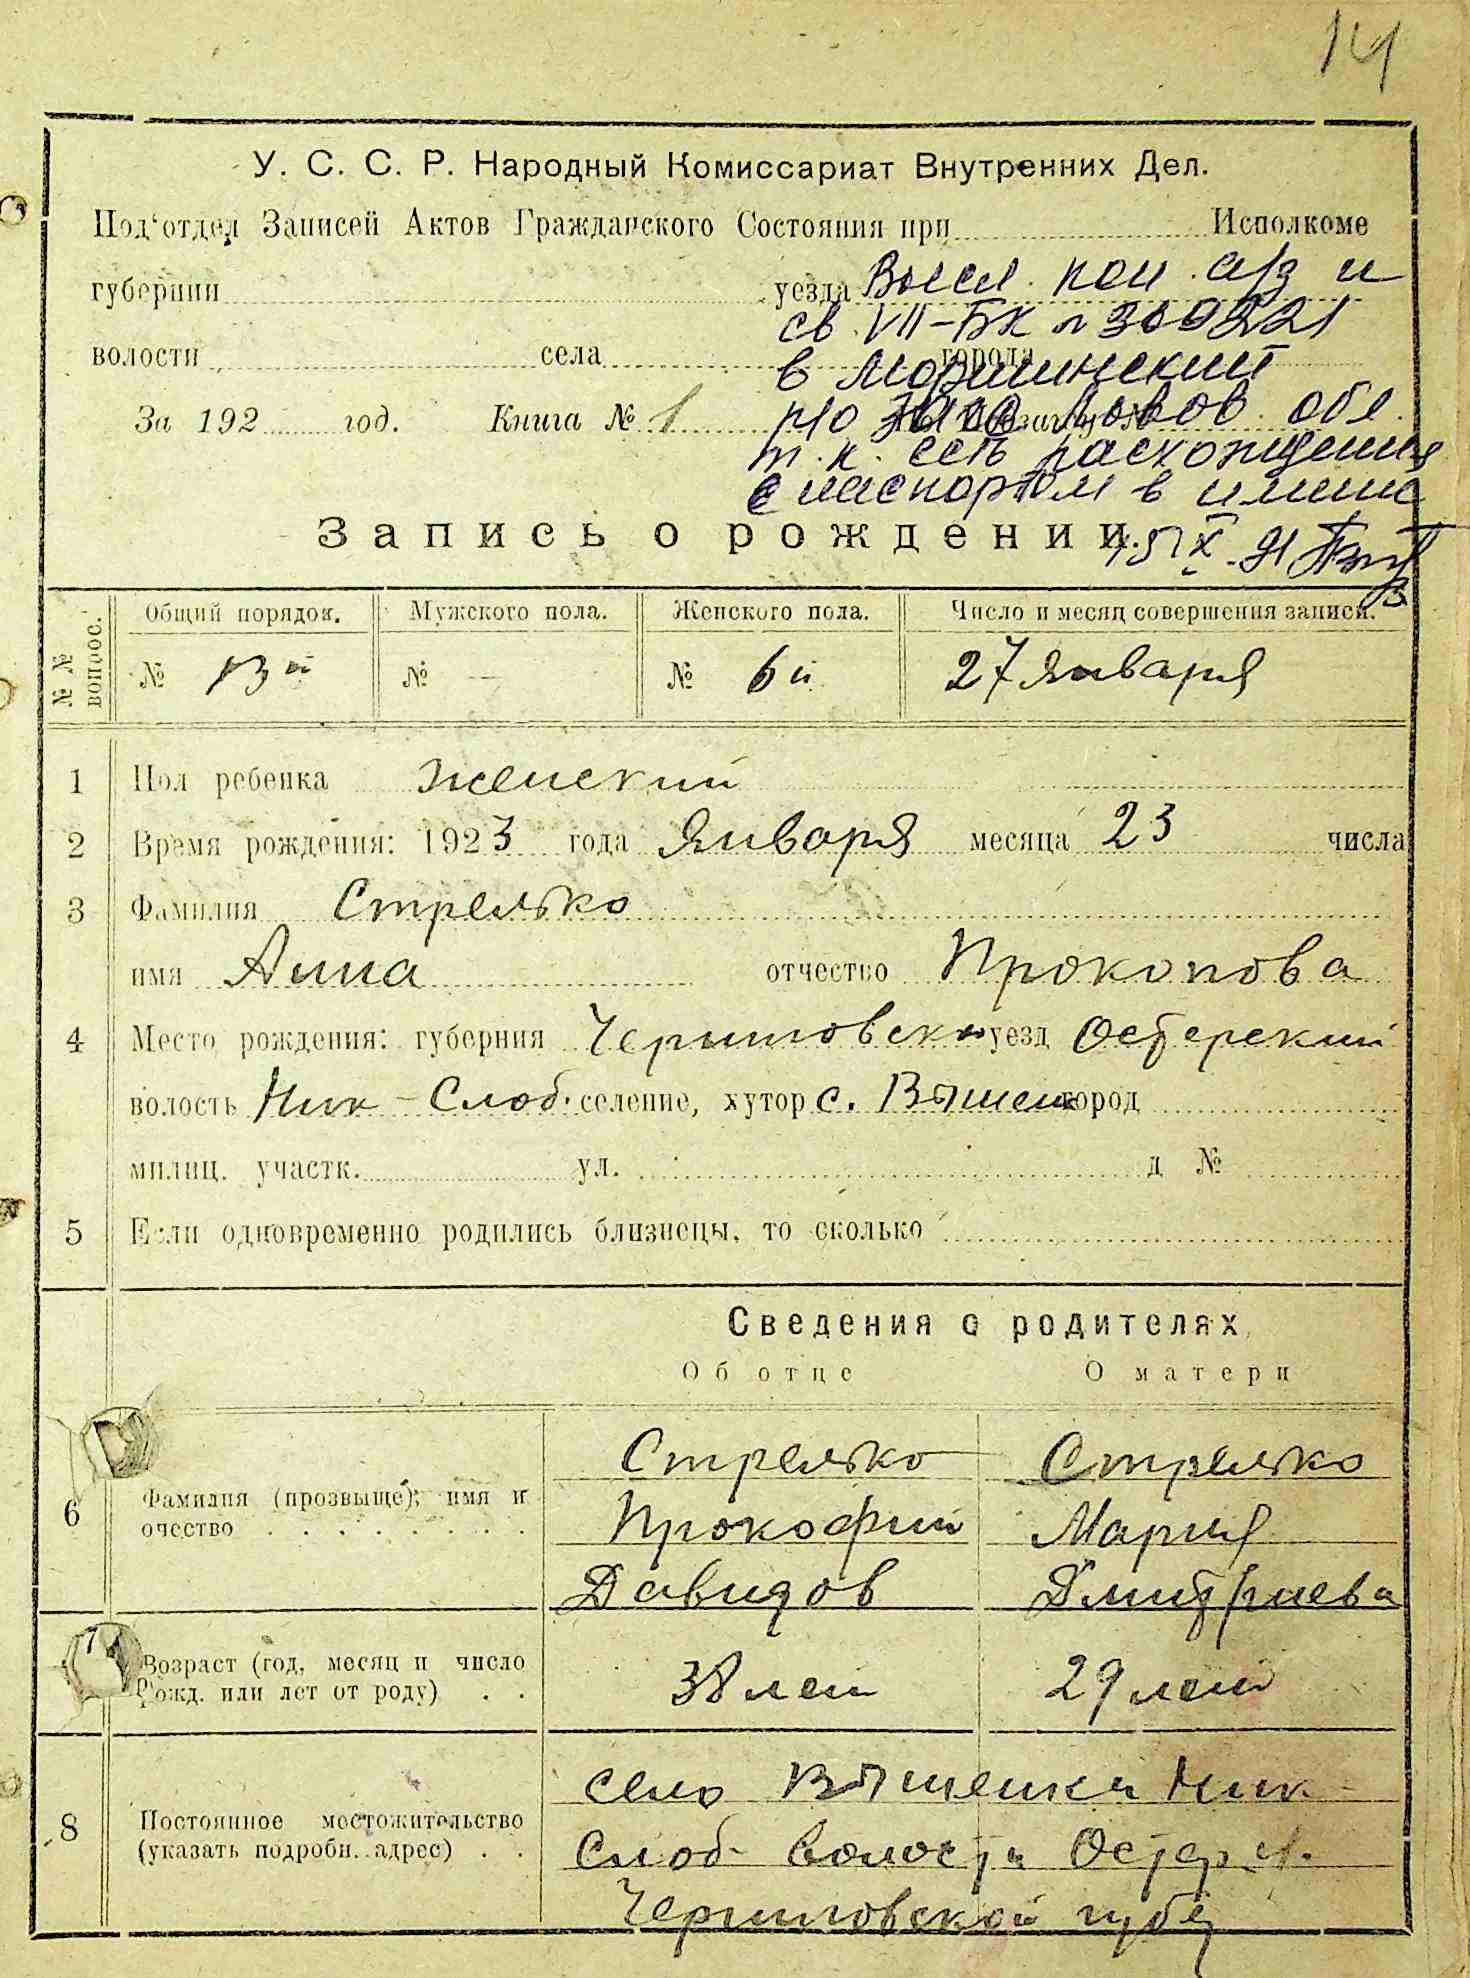 14
У. С. С. Р. Народный Комиссариат Внутренних Дел.
Под'отдел Записей Актов Гражданского Состояния при Исполкоме
губернии уезда
волости села города
За 192 год. Книга № 1
Высл. кои. а/з и
св. VII-БК № 300221
в Моршинский
п/о Львов. обл.
т. к. есть расхождения
с паспортом в имени
15 IX 91
Запись о рождении.
№ № вопрос. Общий порядок. Мужского пола. Женского пола. Число и месяц совершения записи.
№ 13й № — № 6й 27 Января
1 Пол ребенка Женский
2 Время рождения: 1923 года Января месяца 23 числа
3 Фамилия Стрелько
имя Анна отчество Прокопова
4 Место рождения: губерния Черниговск уезд Остерский
волость Ник-Слоб. селение, хутор с. Вишенк город
милиц. участк. ул. д №
5 Если одновременно родились близнецы, то сколько
Сведения о родителях
Об отце О матери
Стрелько Стрелько
6 Фамилия (прозвыще); имя и Прокофий Мария
очество Давидов Дмитриева
7 Возраст (год, месяц и число 38 лет 29 лет
рожд. или лет от роду)
село Вишенки Ник-
8 Постоянное местожительство
(указать подробн. адрес) Слоб. волости Остер. у.
Черниговской губ.